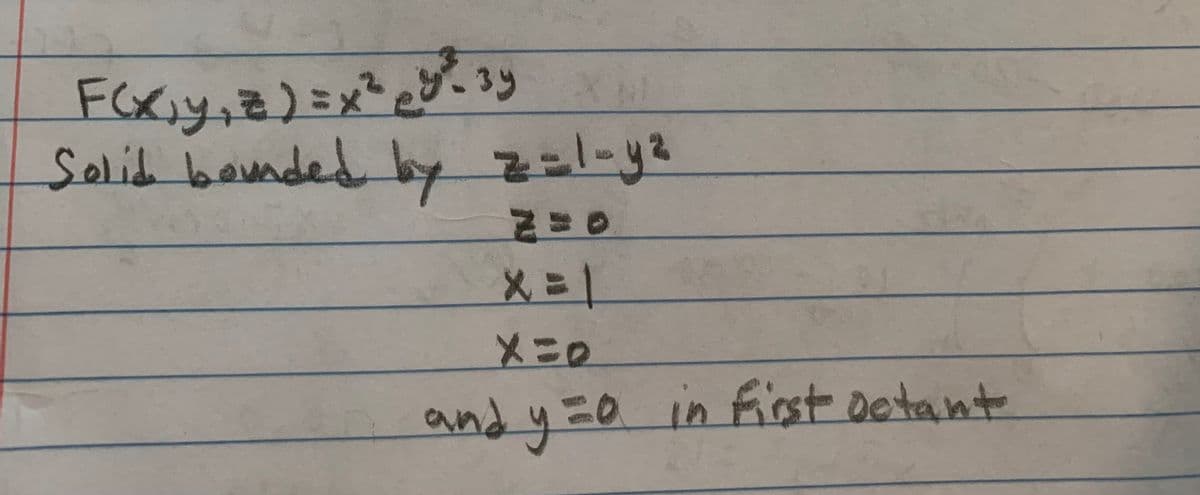 F(x,y,z)=x² e^{y³-3y}
Solid bounded by z=1-y²
z=0
x=1
x=0
and y=0 in first octant